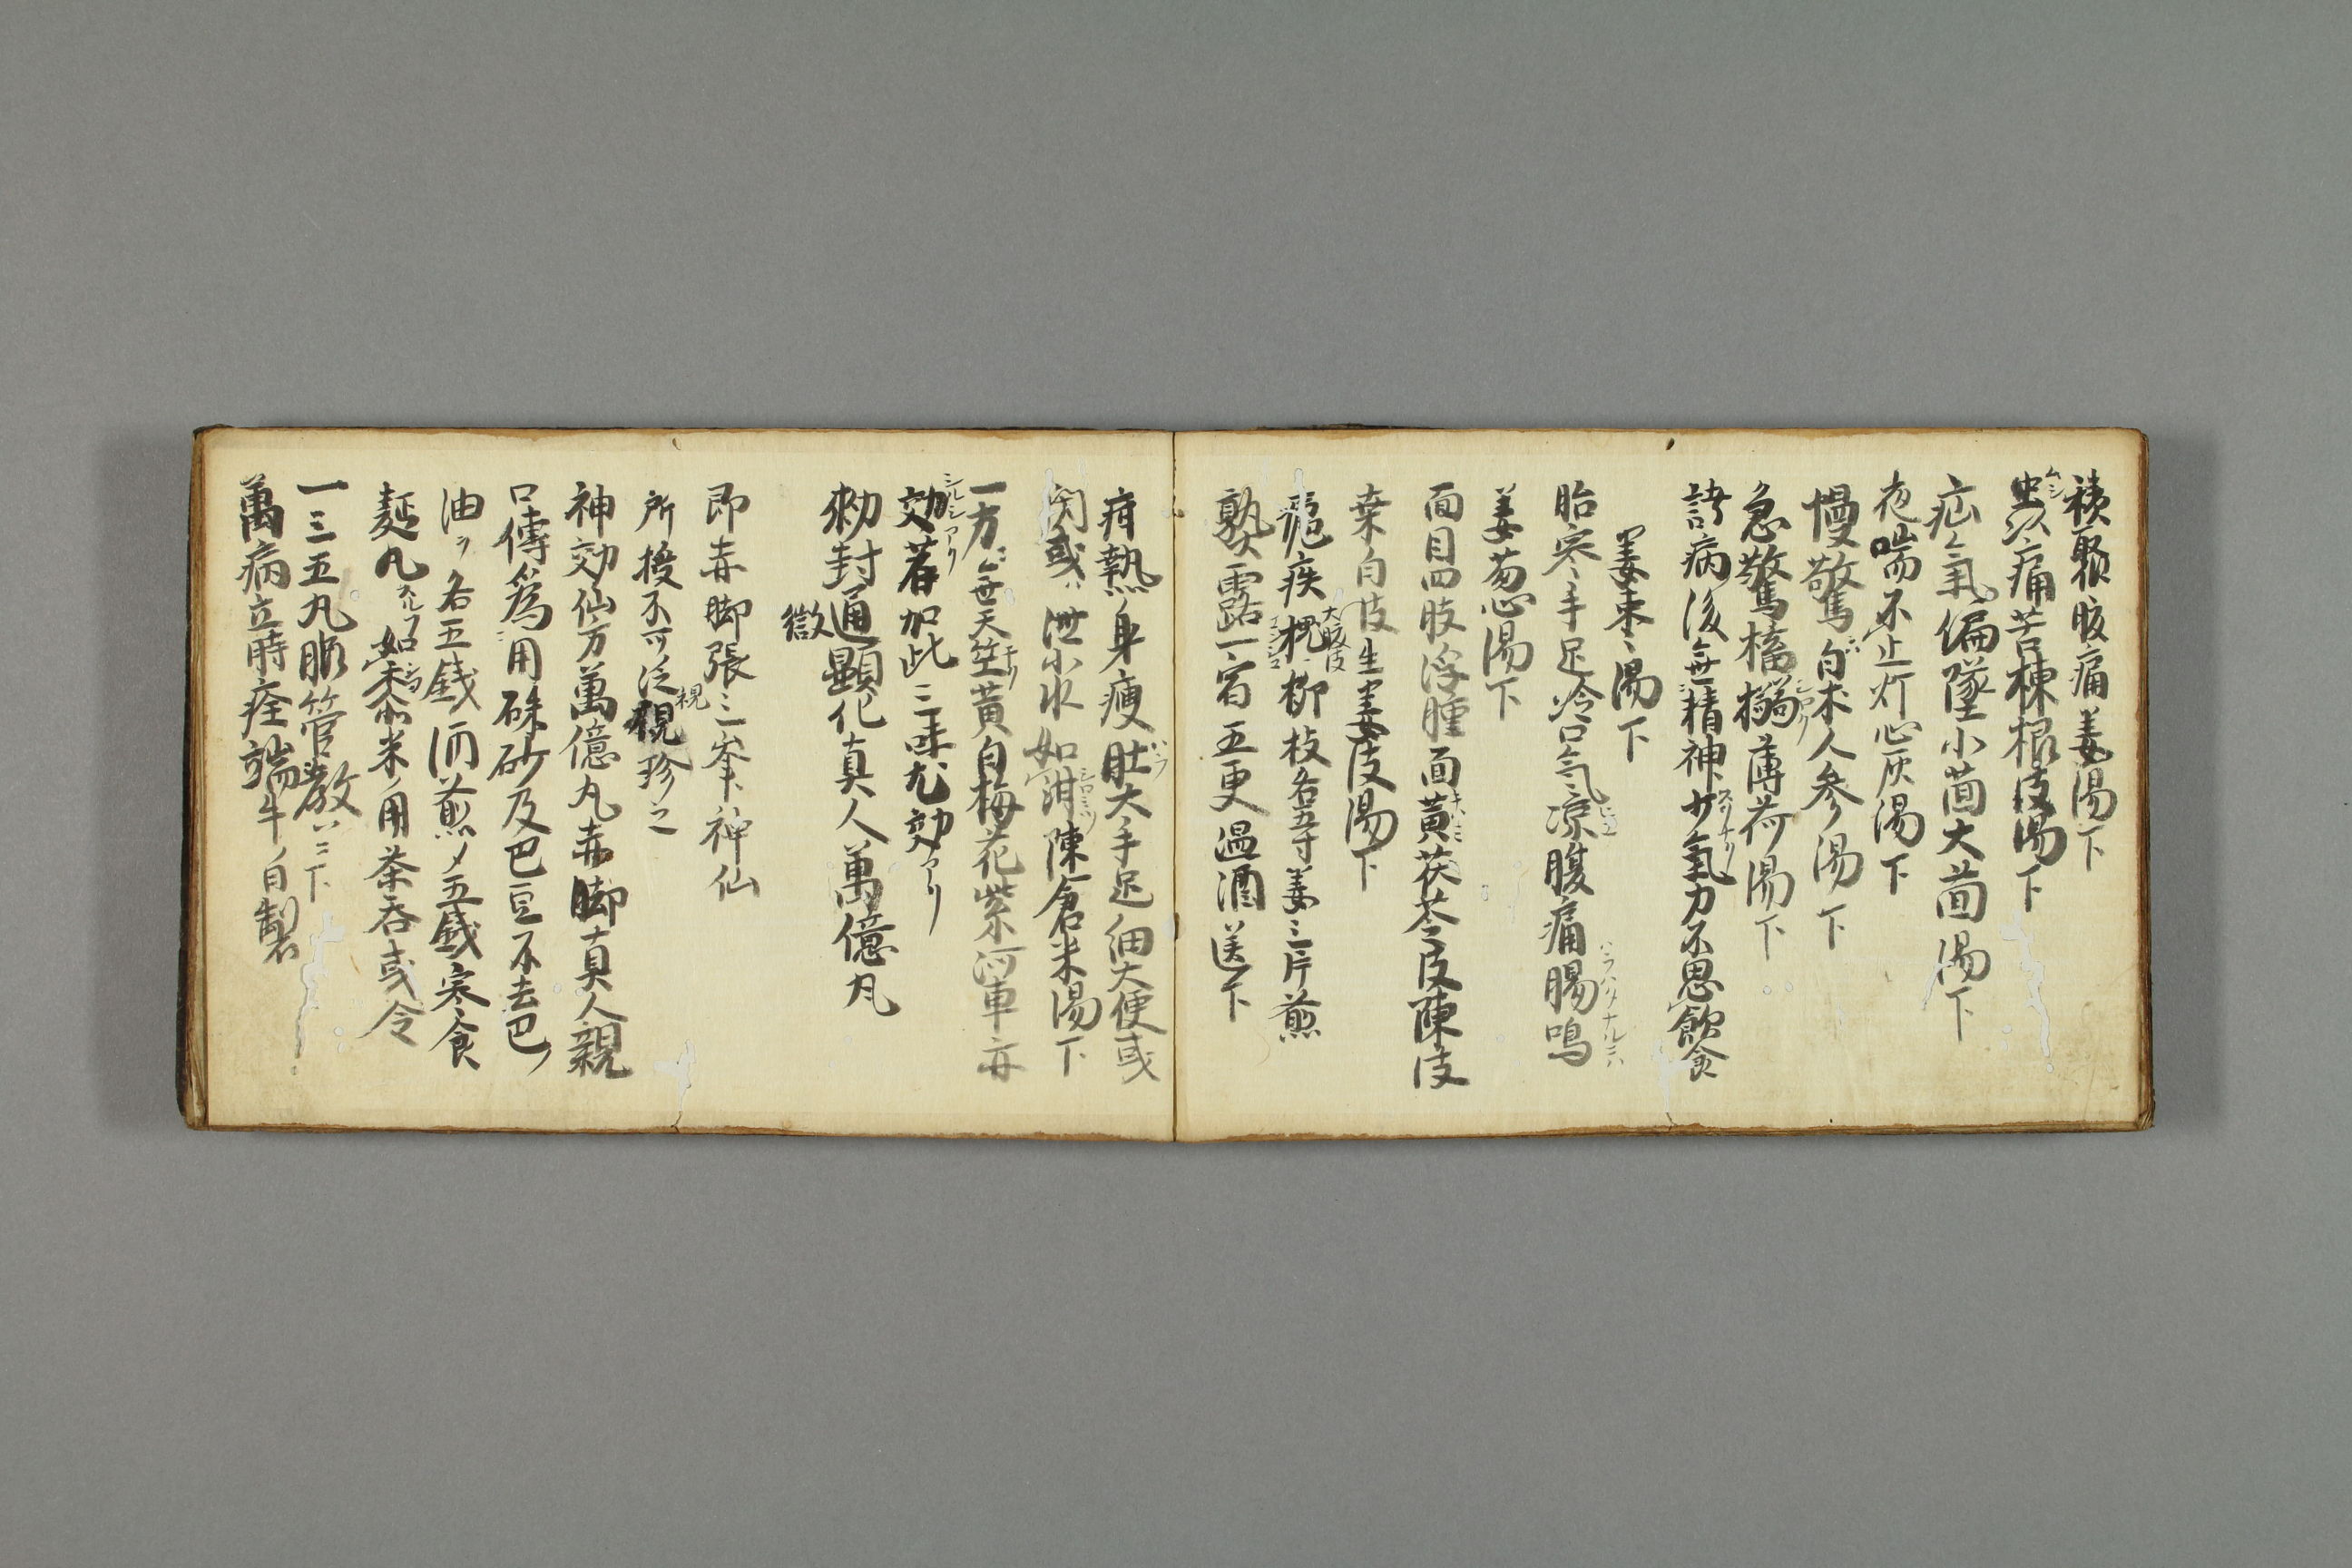 積聚腹痛姜湯下
虫痛苦楝根皮湯下
疝氣偏墜小茴大茴湯下
夜喘不止灯心灰湯下
慢驚白朮人参湯下
急驚搐搦薄荷湯下
諸病後無精神少氣力不思飲食
姜棗湯下
胎寒手足冷口气凉腹痛腸鳴
姜葱湯下
面目四肢浮腫面黄茯苓皮陳皮
桒白皮生姜皮湯下
瘧疾槐柳枝各五寸姜三片煎
熟露一宿五更温酒送下
疳熱身痩肚大手足細大便或
閉或泄小水如泔陳倉米湯下
一方無天竺黄白梅花紫河車亦
シルシアリ
効著加此三味尤効アリ
勑封通顕化真人萬億丸
徵
即赤脚張三峯神仙
所授不可泛視珍之
視
神効仙方萬億丸赤脚真人親
口傳為用硃砂及巴豆不去巴ノ
油ヲ各五銭而煎ノ五銭寒食
麺丸如黍米用茶呑或令
一三五丸服管教下
萬病立時痊端午ノ日製